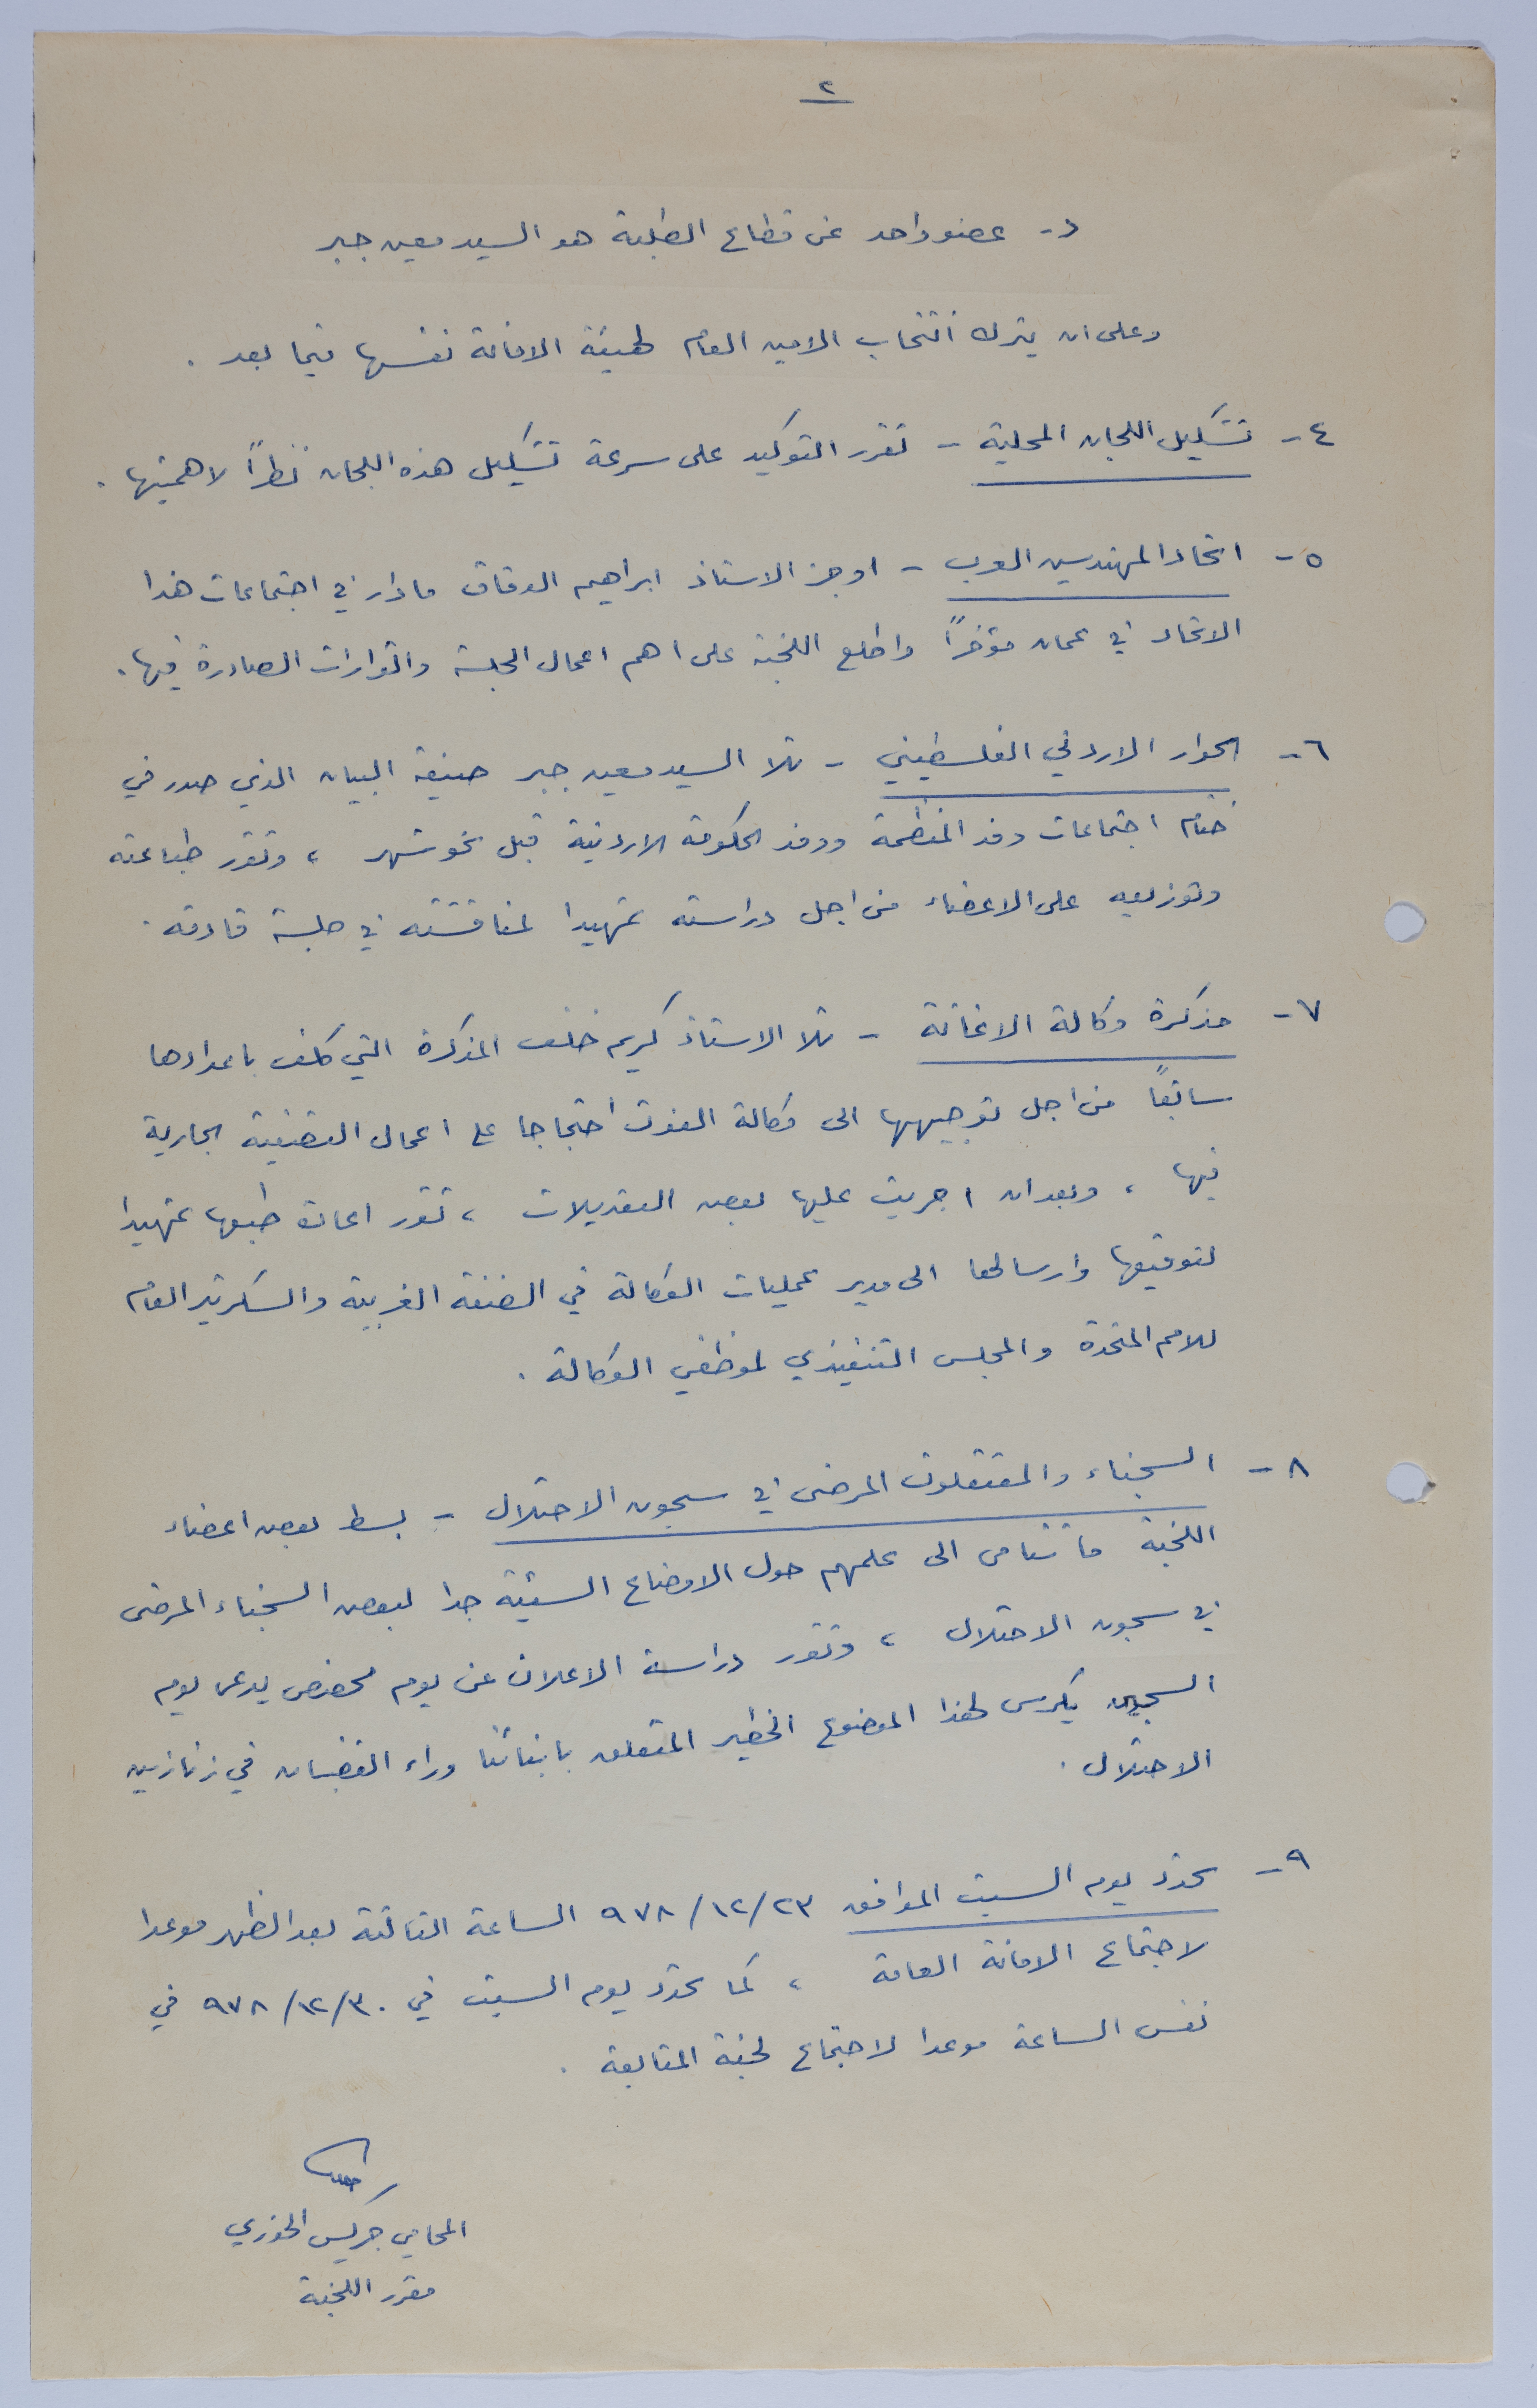 ٢
د- عضو واحد عن قطاع الطلبة هو السيد معين جبر
وعلى ان يترك انتخاب الامين العام لهيئة الامانة نفسها فيما بعد .
٤- تشكيل اللجان المحلية - تقرر التوكيد على سرعة تشكيل هذه اللجان نظراً لاهميتها .
٥- اتحاد المهندسين العرب - اوجز الاستاذ ابراهيم الدقاق ما دار في اجتماعات هذا
الاتحاد في عمان مؤخراً واطلع اللجنة على اهم اعمال الجلسة والقرارات الصادرة فيها .
٦- الحوار الاردني الفلسطيني - تلا السيد معين جبر صيغة البيان الذي صدر في
ختام اجتماعات وفد المنظمة ووفد الحكومة الاردنية قبل نحو شهر ، وتقرر طباعته
وتوزيعه على الاعضاء من اجل دراسته تمهيدا لمناقشته في جلسة قادمة .
٧- مذكرة وكالة الاغاثة - تلا الاستاذ كريم خلف المذكرة التي كلف باعدادها
سابقاً من اجل توجيهها الى وكالة الغوث احتجاجا على اعمال التصفية الجارية
فيها ، وبعد ان اجريت عليها بعض التعديلات ، تقرر اعادة طبعها تمهيدا
لتوقيعها وارسالها الى مدير عمليات الوكالة في الضفة الغربية والسكرتير العام
للامم المتحدة والمجلس التنفيذي لموظفي الوكالة .
٨- السجناء والمعتقلون المرضى في سجون الاحتلال - بسط بعض اعضاء
اللجنة ما تنامى الى علمهم حول الاوضاع السيئة جدا لبعض السجناء المرضى
في سجون الاحتلال ، وتقرر دراسة الاعلان عن يوم مخصص يدعى يوم
السجين يكرس لهذا الموضوع الخطير المتعلق بابنائنا وراء القضبان في زنازين
الاحتلال .
٩- تحدد يوم السبت الموافق ٩٧٨/١٢/٢٣ الساعة الثالثة بعد الظهر موعدا
لاجتماع الامانة العامة ، كما تحدد يوم السبت في ٩٧٨/١٢/٣٠ في
نفس الساعة موعدا لاجتماع لجنة المتابعة .
المحامي جريس الخوري
مقرر اللجنة